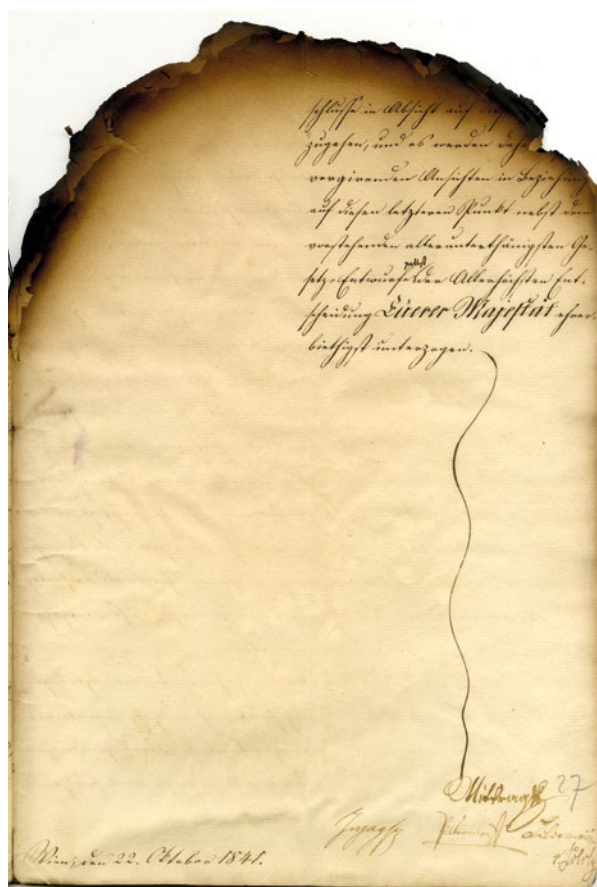 schlusse in Absicht auf diese
zugehen, und es werden dahe
vergirenden Ansichten in Beziehung
auf diesen letzteren Punkt nebst dem
vorstehenden allerunterthänigsten Ge-
setz-Entwurfe selbst der Allerhöchsten Ent-
scheidung Euerer Majestät ehrer-
biethigst unterzogen.
27
Wien, den 22. Oktober 1841.